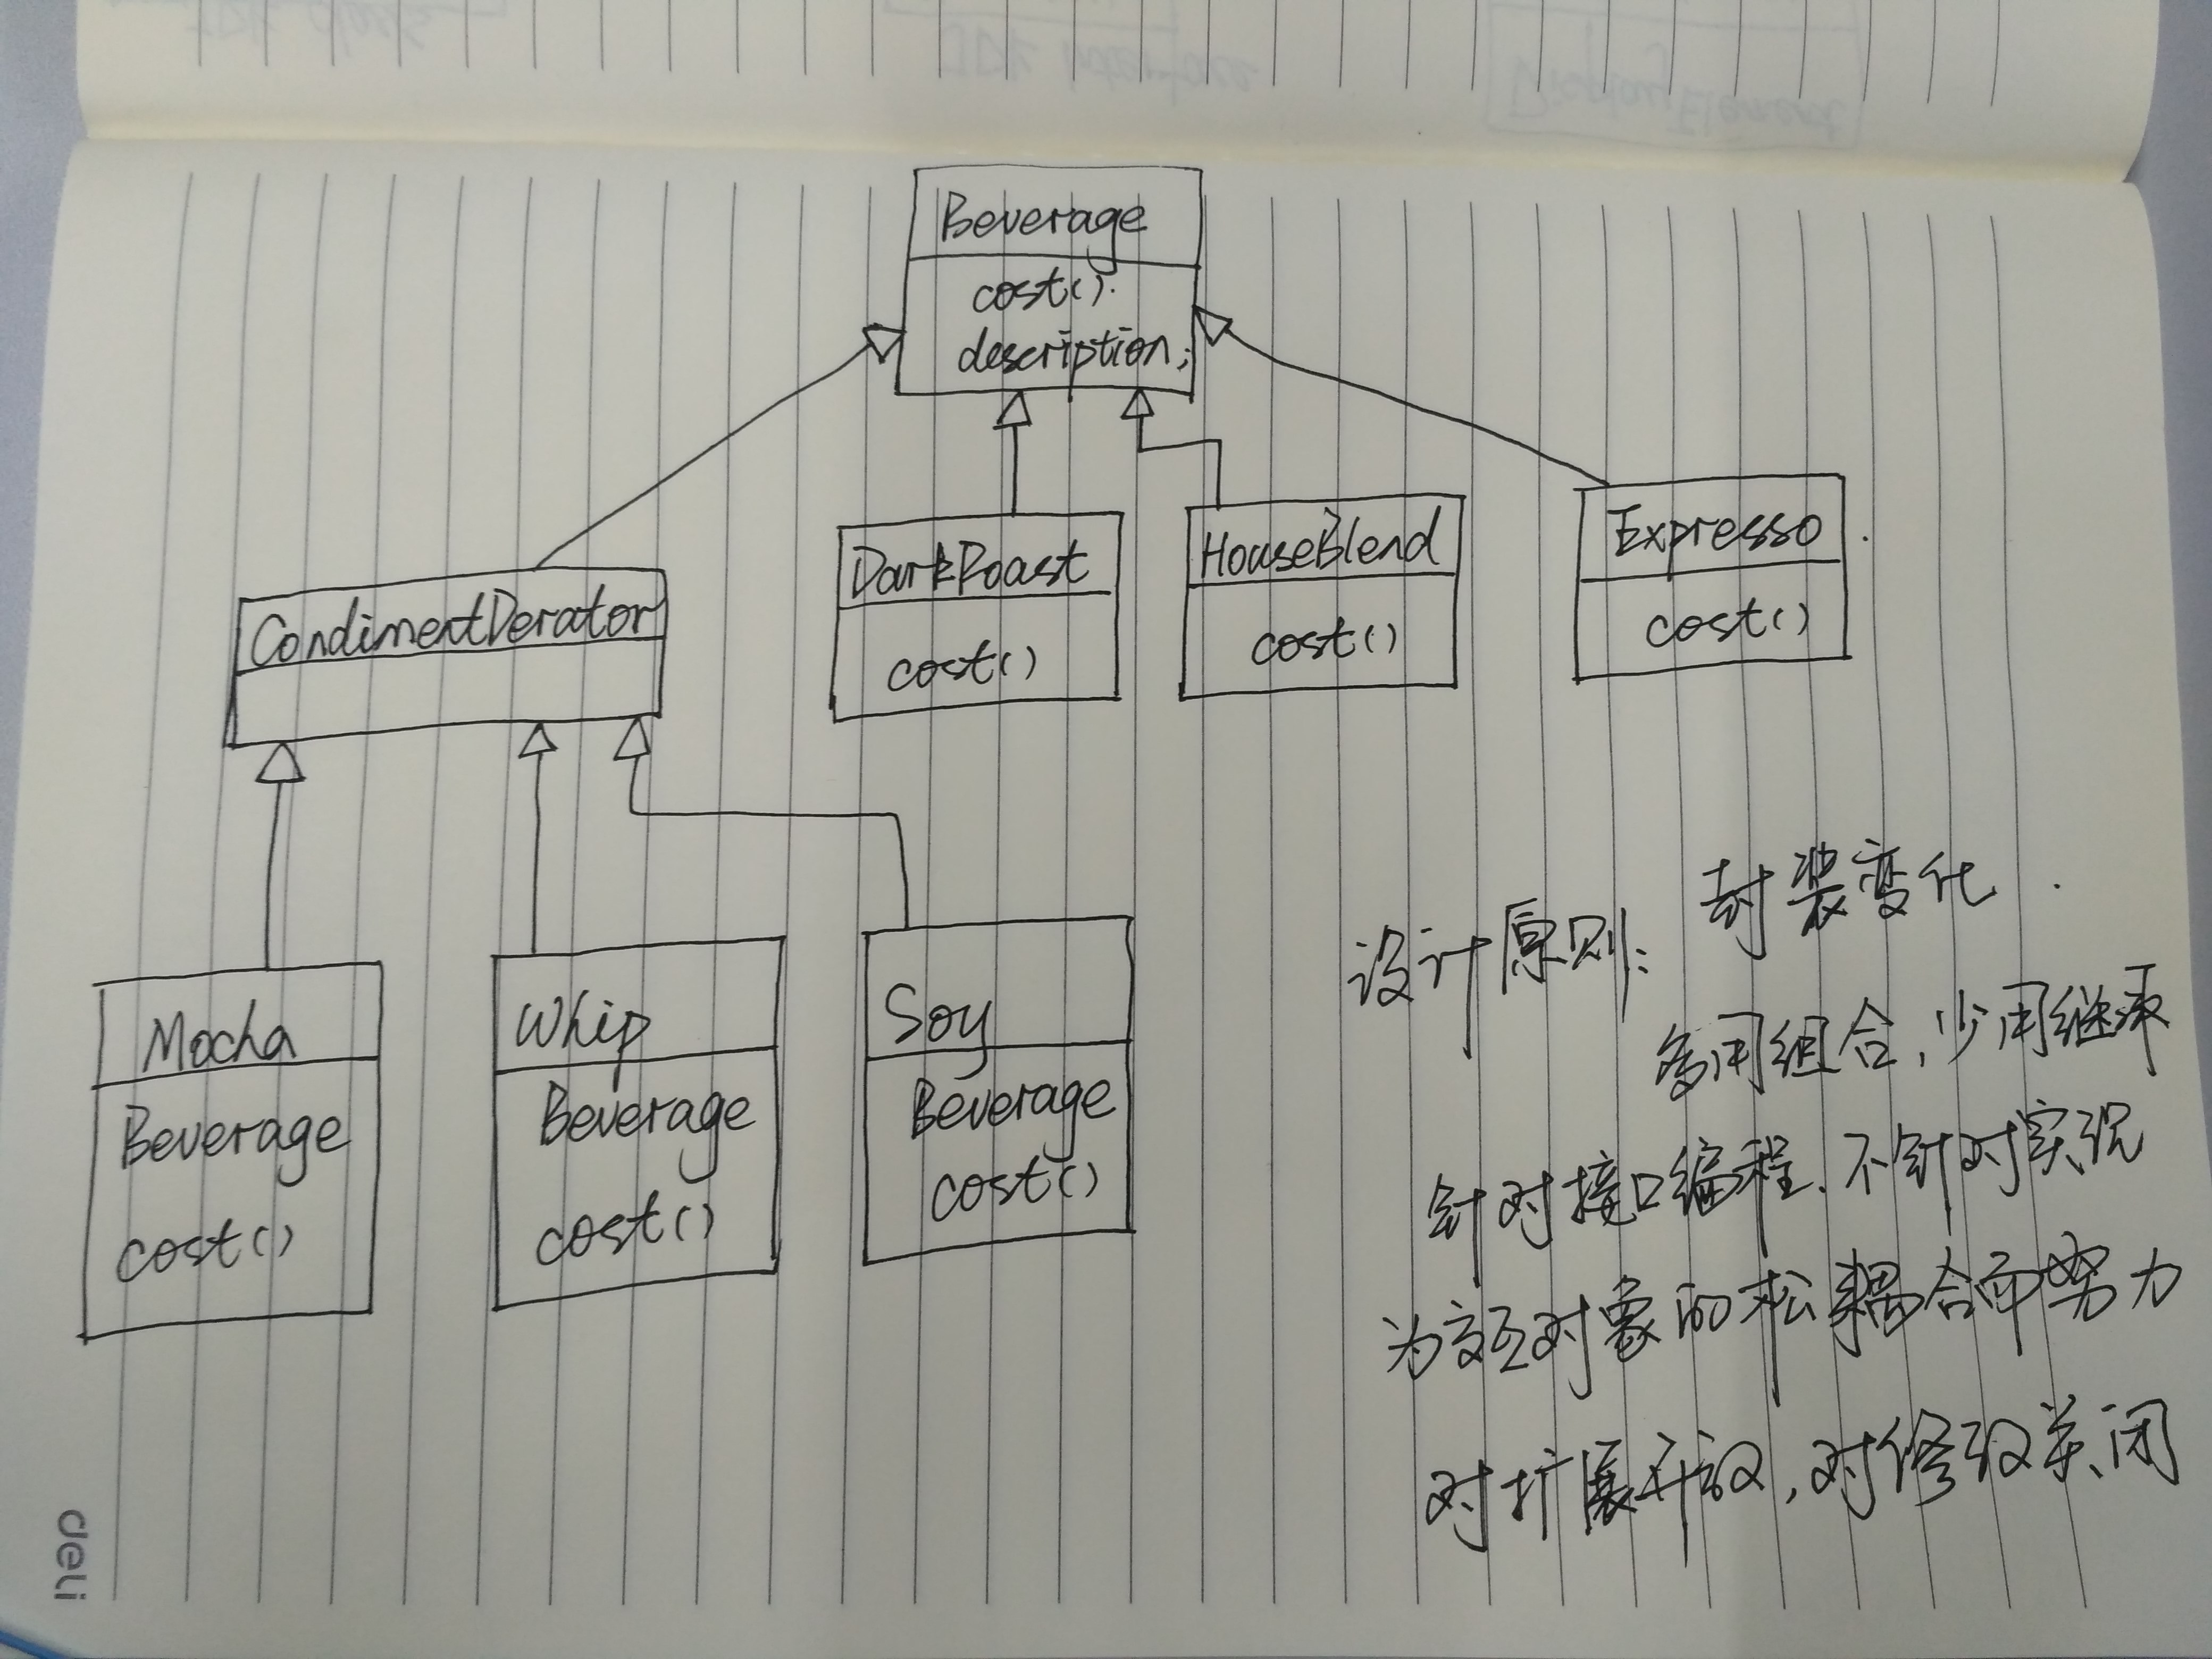 Beverage
cost().
description;
CondimentDerator
DarkRoast
cost()
HouseBlend
cost()
Expresso
cost()
Mocha
Beverage
cost()
Whip
Beverage
cost()
Soy
Beverage
cost()
设计原则: 封装变化.
多用组合,少用继承
针对接口编程.不针对实现
为交互对象的松耦合而努力
对扩展开放,对修改关闭
deli